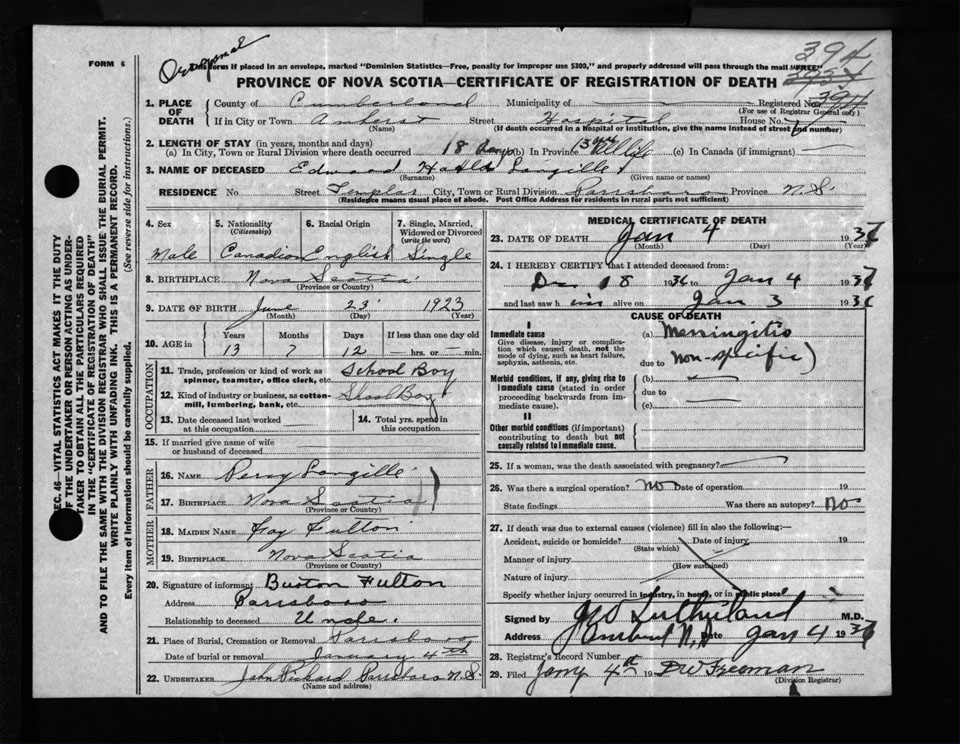 Original
FORM 6
This form if placed in an envelope, marked "Dominion Statistics—Free, penalty for improper use $300," and properly addressed will pass through the mail "FREE"
394
PROVINCE OF NOVA SCOTIA—CERTIFICATE OF REGISTRATION OF DEATH
394
1. PLACE OF DEATH County of Cumberland Municipality of Registered No. 394
(For use of Registrar General only)
If in City or Town Amherst Street Hospital House No.
(Name) (If death occurred in a hospital or institution, give the name instead of street and number)
2. LENGTH OF STAY (in years, months and days)
(a) In City, Town or Rural Division where death occurred 18 days (b) In Province (c) In Canada (if immigrant)
3. NAME OF DECEASED Edward Langille
(Surname) (Given name or names)
RESIDENCE No Street City, Town or Rural Division Parrsboro Province N.S.
(Residence means usual place of abode. Post Office Address for residents in rural parts not sufficient)
4. Sex 5. Nationality 6. Racial Origin 7. Single, Married, Widowed or Divorced
(Citizenship) (write the word)
Male Canadian English Single
8. BIRTHPLACE Nova Scotia
(Province or Country)
9. DATE OF BIRTH June 23 1923
(Month) (Day) (Year)
10. AGE in Years Months Days If less than one day old
13 7 12 hrs. or min.
OCCUPATION
11. Trade, profession or kind of work as spinner, teamster, office clerk, etc. School Boy
12. Kind of industry or business, as cotton-mill, lumbering, bank, etc. School Boy
13. Date deceased last worked at this occupation 14. Total yrs. spent in this occupation
15. If married give name of wife or husband of deceased
FATHER
16. NAME Percy Langille
17. BIRTHPLACE Nova Scotia
(Province or Country)
MOTHER
18. MAIDEN NAME Fay Fulton
19. BIRTHPLACE Nova Scotia
(Province or Country)
20. Signature of informant Burton Fulton
Address Parrsboro
Relationship to deceased Uncle.
21. Place of Burial, Cremation or Removal Parrsboro
Date of burial or removal January 4th
22. UNDERTAKER John Rickard Parrsboro N.S.
(Name and address)
MEDICAL CERTIFICATE OF DEATH
23. DATE OF DEATH Jan 4 1937
(Month) (Day) (Year)
24. I HEREBY CERTIFY that I attended deceased from:
Dec 18 1936 to Jan 4 1937
and last saw him alive on Jan 3 193
CAUSE OF DEATH
I
Immediate cause (a) Meningitis
Give disease, injury or complication which caused death, not the mode of dying, such as heart failure, asphyxia, asthenia, etc.
due to Non-specific)
Morbid conditions, if any, giving rise to immediate cause (stated in order proceeding backwards from immediate cause).
(b)
due to
(c)
II
Other morbid conditions (if important) contributing to death but not causally related to immediate cause.
25. If a woman, was the death associated with pregnancy?
26. Was there a surgical operation? No Date of operation 19
State findings Was there an autopsy? No
27. If death was due to external causes (violence) fill in also the following:—
Accident, suicide or homicide? Date of injury 19
(State which)
Manner of injury
(How sustained)
Nature of injury
Specify whether injury occurred in industry, in home, or in public place
Signed by Sutherland M.D.
Address Amherst N.S. Date Jan 4 1937
28. Registrar's Record Number
29. Filed Jany 4th 19 Freeman
(Division Registrar)
SEC. 46—VITAL STATISTICS ACT MAKES IT THE DUTY OF THE UNDERTAKER OR PERSON ACTING AS UNDERTAKER TO OBTAIN ALL THE PARTICULARS REQUIRED IN THE "CERTIFICATE OF REGISTRATION OF DEATH"
AND TO FILE THE SAME WITH THE DIVISION REGISTRAR WHO SHALL ISSUE THE BURIAL PERMIT.
WRITE PLAINLY WITH UNFADING INK. THIS IS A PERMANENT RECORD.
Every item of information should be carefully supplied. (See reverse side for instructions.)